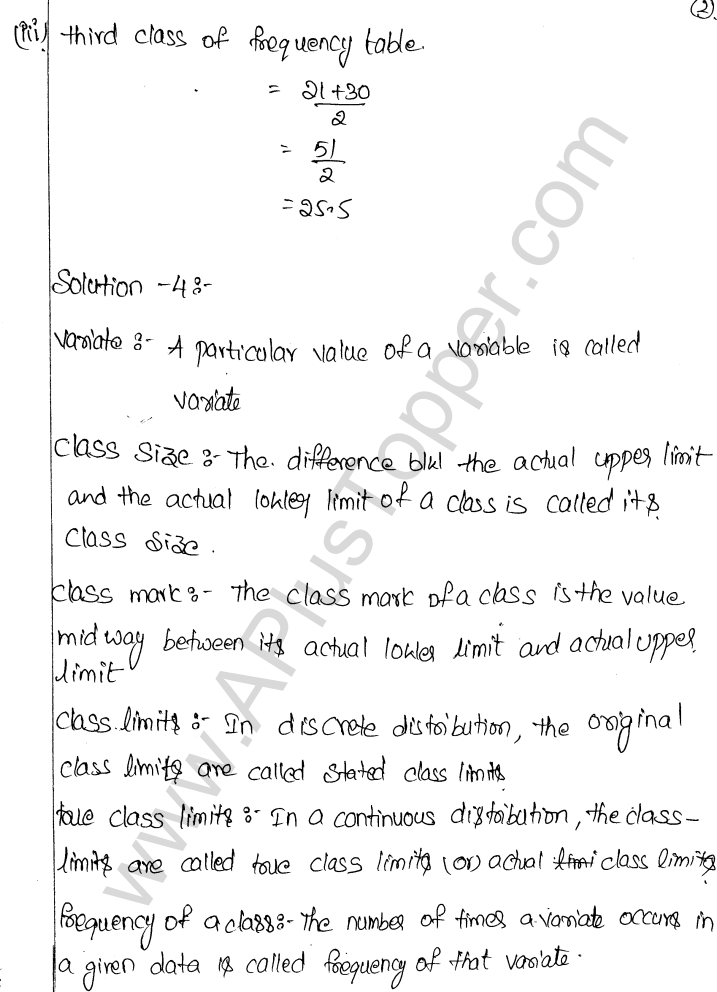 (2).
(iii) third class of frequency table.
= 21+30
2
= 51
2
= 25.5
Solution -4 :-
Variate :- A particular value of a variable is called
variate
Class Size :- The difference b/w the actual upper limit
and the actual lower limit of a class is called its
Class Size.
Class mark :- The class mark of a class is the value
mid way between its actual lower limit and actual upper
limit
Class limits :- In discrete distribution, the original
class limits are called stated class limits
true class limits :- In a continuous distribution, the class-
limits are called true class limits (or) actual limi class limits
frequency of a class:- The number of times a variate occurs in
a given data is called frequency of that variate.
www.APlusTopper.com